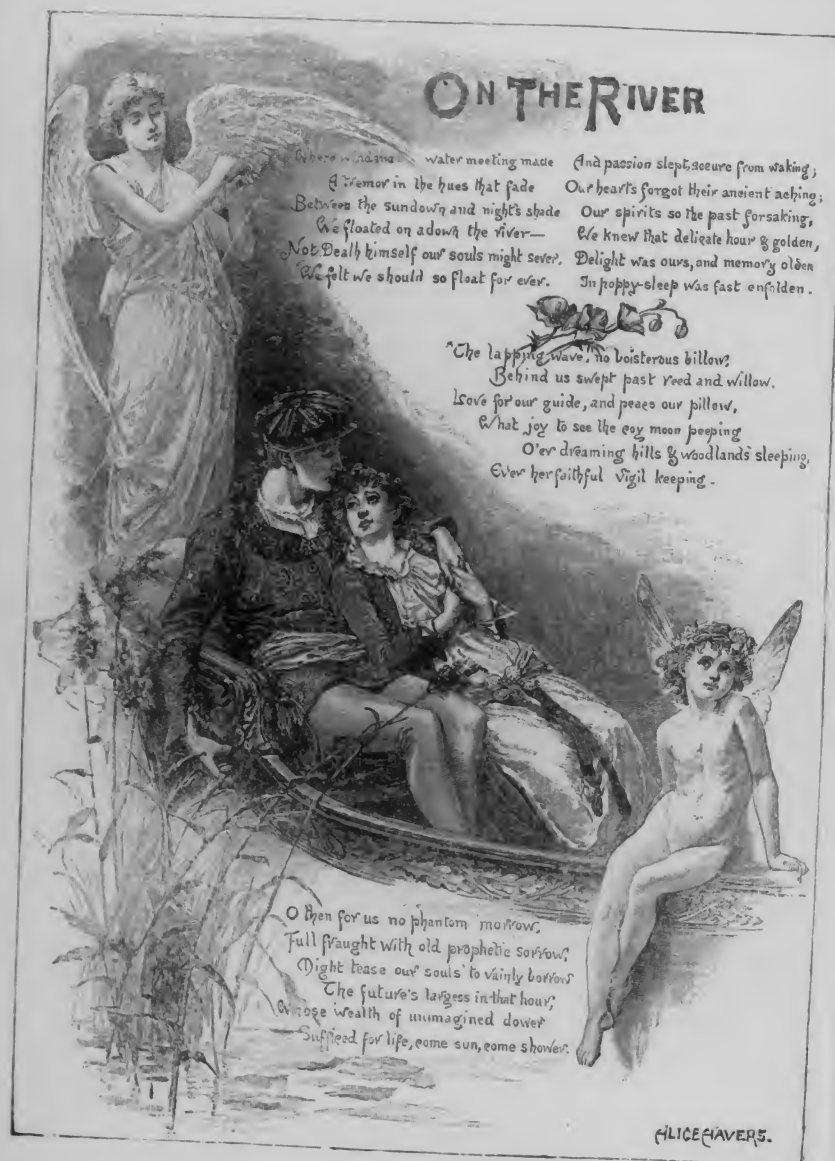 ON THE RIVER
Where wind and water meeting made
A tremor in the hues that fade
Between the sundown and night's shade
We floated on adown the river—
Not Death himself our souls might sever,
We felt we should so float for ever.
And passion slept, secure from waking;
Our hearts forgot their ancient aching;
Our spirits so the past forsaking,
We knew that delicate hour & golden,
Delight was ours, and memory olden
In poppy-sleep was fast enfolden.
The lapping wave, no boisterous billow,
Behind us swept past reed and willow.
Love for our guide, and peace our pillow,
What joy to see the coy moon peeping
O'er dreaming hills & woodlands sleeping,
Ever her faithful vigil keeping.
O then for us no phantom morrow,
Full fraught with old prophetic sorrow,
Might tease our souls to vainly borrow
The future's largess in that hour,
Whose wealth of unimagined dower
Sufficed for life, come sun, come shower.
ALICE HAVERS.